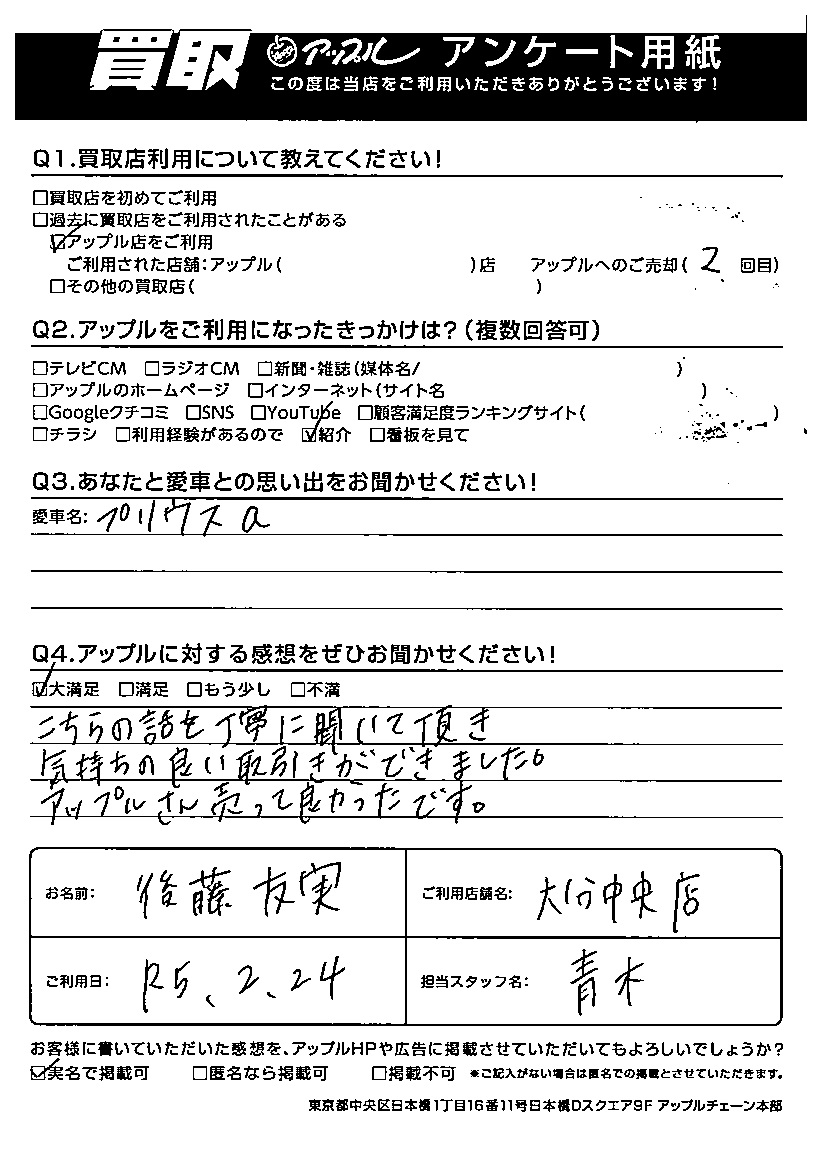 買取 アップル アンケート用紙
この度は当店をご利用いただきありがとうございます!
Q1.買取店利用について教えてください!
□買取店を初めてご利用
□過去に買取店をご利用されたことがある
☑アップル店をご利用
ご利用された店舗:アップル( )店 アップルへのご売却( 2 回目)
□その他の買取店( )
Q2.アップルをご利用になったきっかけは?(複数回答可)
□テレビCM □ラジオCM □新聞・雑誌(媒体名/ )
□アップルのホームページ □インターネット(サイト名 )
□Googleクチコミ □SNS □YouTube □顧客満足度ランキングサイト( )
□チラシ □利用経験があるので ☑紹介 □看板を見て
Q3.あなたと愛車との思い出をお聞かせください!
愛車名: プリウスα
Q4.アップルに対する感想をぜひお聞かせください!
☑大満足 □満足 □もう少し □不満
こちらの話を丁寧に聞いて頂き
気持ちの良い取引きができました。
アップルさん売って良かったです。
お名前: 後藤 友実 ご利用店舗名: 大分中央店
ご利用日: R5、2、24 担当スタッフ名: 青木
お客様に書いていただいた感想を、アップルHPや広告に掲載させていただいてもよろしいでしょうか?
☑実名で掲載可 □匿名なら掲載可 □掲載不可 ※ご記入がない場合は匿名での掲載とさせていただきます。
東京都中央区日本橋1丁目16番11号日本橋Dスクエア9F アップルチェーン本部